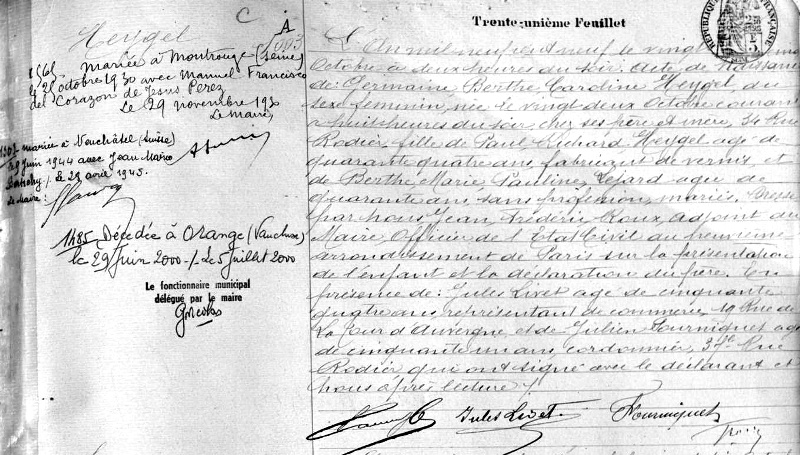 Trente-unième Feuillet
RÉPUBLIQUE FRANÇAISE
Heygel
C
A
mariée à Montrouge (Seine)
le 26 octobre 1930 avec Manuel Francisco
del Corazon de Jesus Perez
Le 29 novembre 193
Le Maire
mariée à Neuchâtel (Suisse)
juin 1944 avec Jean Marie
Le 29 avril 1945.
Le Maire:
1485 Décédée à Orange (Vaucluse)
le 29 Juin 2000 ./. Le 5 juillet 2000
Le fonctionnaire municipal
délégué par le maire
L'An mil neuf cent neuf le vingt
Octobre à deux heures du soir. Acte de Naissance
de: Germaine, Berthe, Caroline Heygel, du
sexe féminin, née le vingt deux Octobre courant
à huit heures du soir, chez ses père et mère, 34 Rue
Rodier, fille de Paul Richard Heygel âgé de
quarante quatre ans, fabricant de vernis, et
de Berthe, Marie, Pauline Lejard âgée de
quarante ans sans profession, mariés. Dressé
par Nous Jean, Frédéric Roux, adjoint du
Maire, Officier de l'Etat Civil du neuvième
arrondissement de Paris sur la présentation
de l'enfant et la déclaration du père. En
présence de: Jules Livet âgé de cinquante
quatre ans, représentant de commerce, 19 Rue de
La Tour d'Auvergne et de Julien Fourniguet âgé
de cinquante un ans, cordonnier, 37 Rue
Rodier qui ont signé avec le déclarant et
Nous après lecture ./.
Jules Livet
Fourniguet
Roux